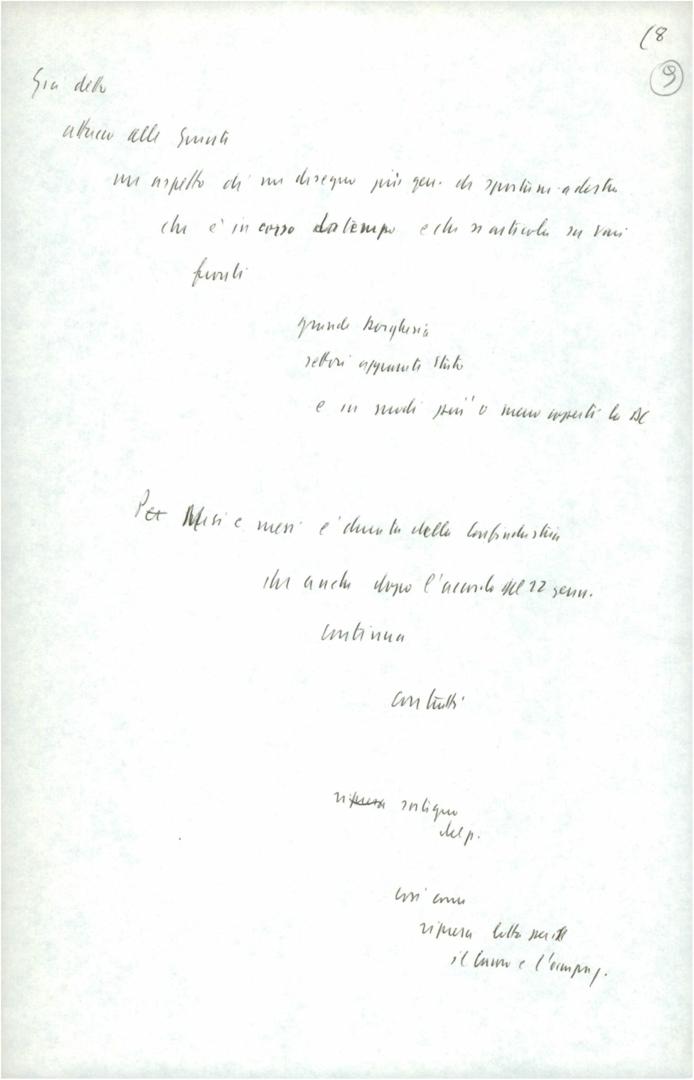 18
9
Già detto
attacco alle Giunte
un aspetto di un disegno più gen. di spostam. a destra
che è in corso da tempo e che si articola su vari
fronti
grande borghesia
settori apparati Stato
e in modi più o meno coperti la DC
Per Mesi e mesi è durata della Confindustria
che anche dopo l'accordo del 22 genn.
continua
contratti
ripresa
del p.
così come
ripresa lotta per il
il lavoro e l'occupaz.